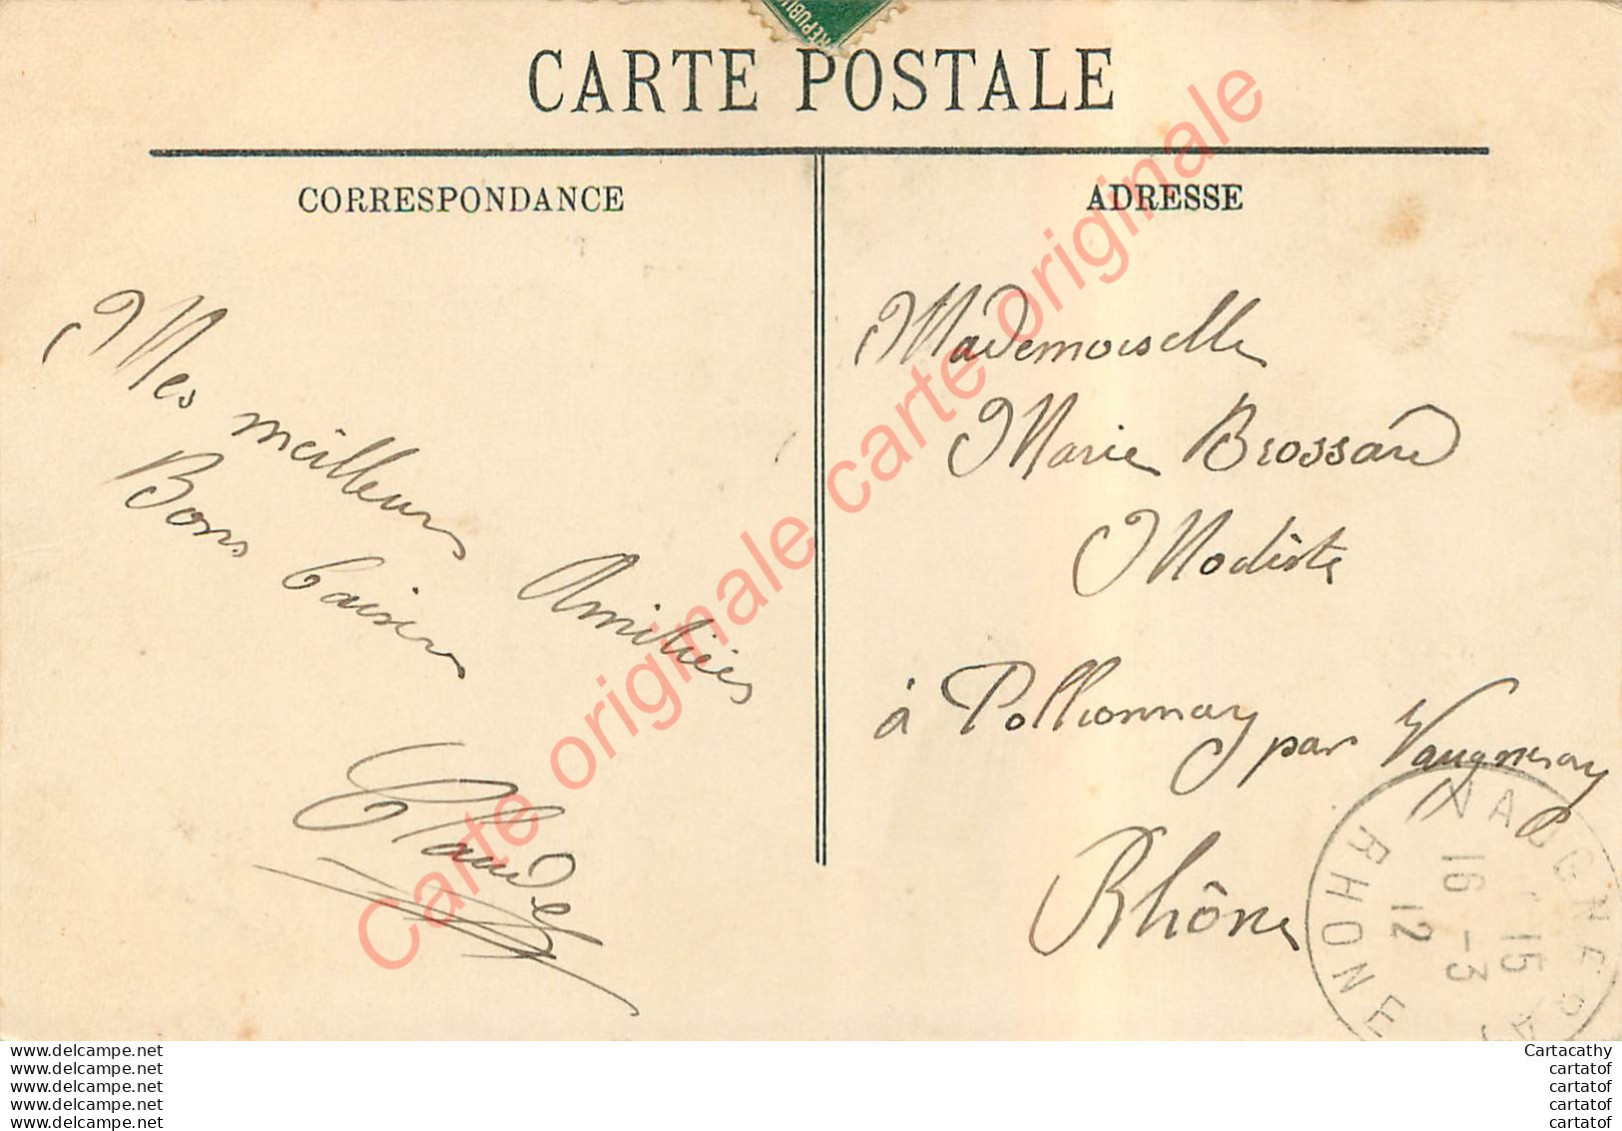 RÉPUBL
CARTE POSTALE
CORRESPONDANCE
ADRESSE
Mes meilleurs Amitiés
Bons baisers
Claude
Mademoiselle
Marie Brossard
Modiste
à Pollionnay par Vaugneray
Rhône
VAUGNERAY
15
16 -3
12
RHONE
Carte originale carte originale carte originale
www.delcampe.net
www.delcampe.net
www.delcampe.net
www.delcampe.net
www.delcampe.net
Cartacathy
cartatof
cartatof
cartatof
cartatof